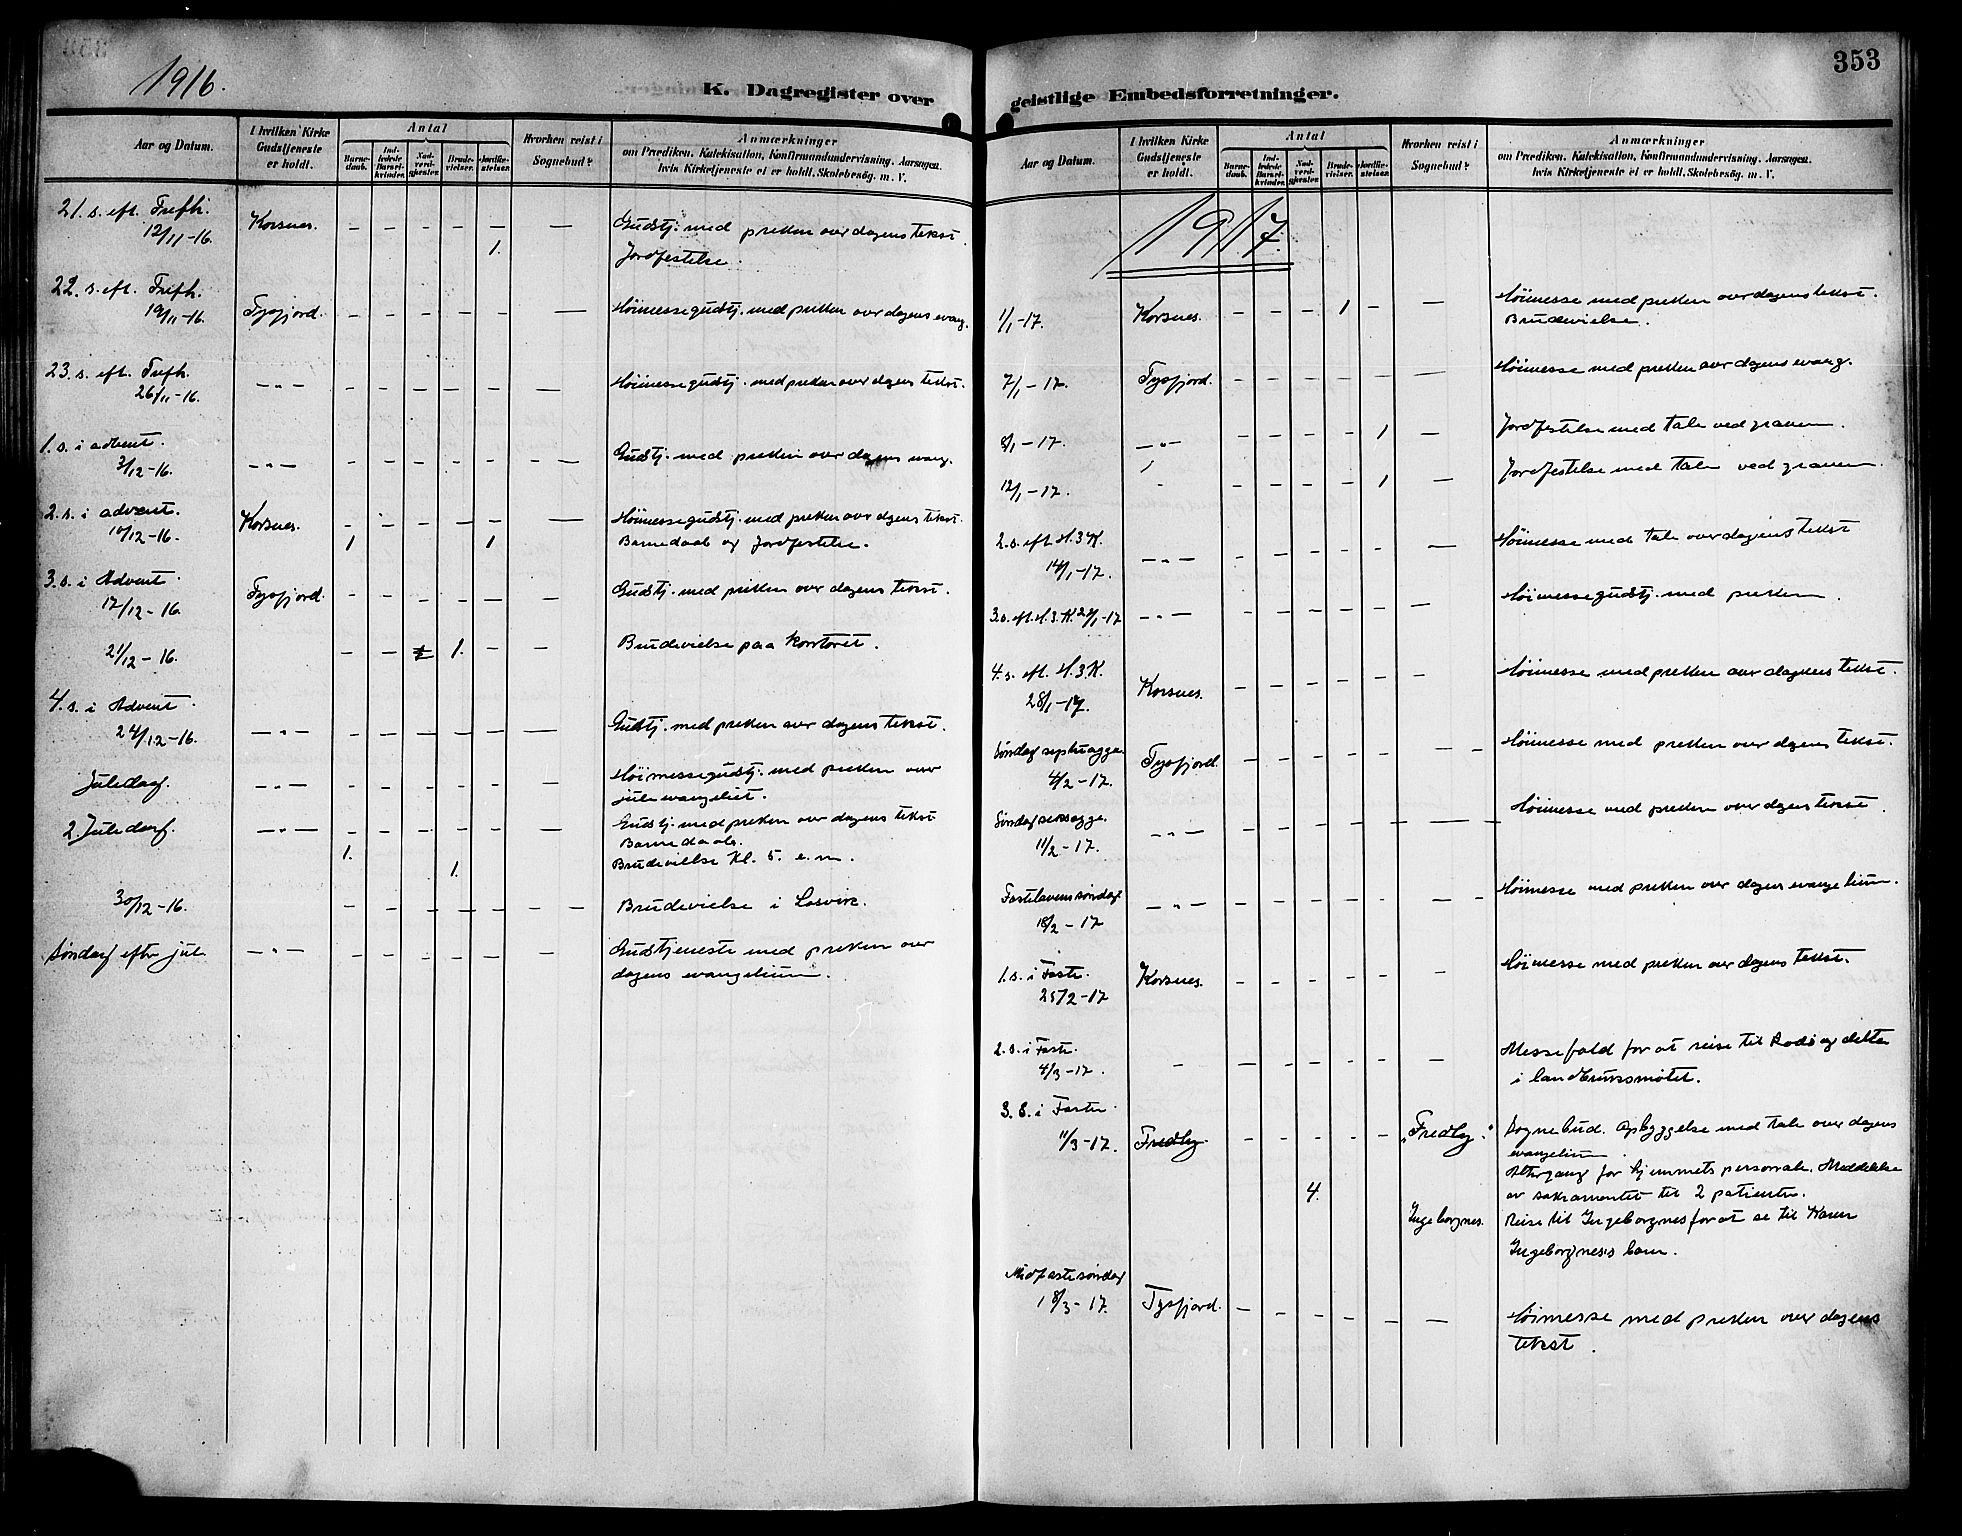 1916.
K. Dagregister over
Aar og Datum.
I hvilken Kirke Gudstjeneste er holdt.
Antal
Barne-daab.
Ind-ledede Barsel-kvinder.
Nad-verd-gjester.
Brude-vielser.
Jordfæ-stelser.
Hvorhen reist i Sognebud?
Anmærkninger
om Prædiken, Katekisation, Konfirmandundervisning, Aarsagen,
hvis Kirketjeneste ei er holdt, Skolebesøg, m. V.
21. s. eft. Trefh.
12/11-16. Korsnes. – – – – – — Gudstj. med preken over dagens tekst.
1. Jordfestelse.
22. s. eft. Trefh.
19/11-16. Tysfjord. – – – – – — Høimessegudstj. med preken over dagens evang.
23. s. eft. Trefh.
26/11-16. — " — – – – – – — Høimessegudstj. med preken over dagens tekst.
1. s. i advent.
3/12-16. — " — – – – – – — Gudstj. med preken over dagens evang.
2. s. i advent.
10/12-16. Korsnes. – – – – – — Høimessegudstj. med preken over dagens tekst.
1 1 Barnedaab og Jordfestelse.
3. s. i Advent.
17/12-16. Tysfjord. – – – – – — Gudstj. med preken over dagens tekst.
21/12-16. – – 1. – — Brudevielse paa Kontoret.
4. s. i Advent.
24/12-16. — " — – – – – – — Gudstj. med preken over dagens tekst.
Juledag. — " — – – – – – — Høimessegudstj. med preken over
juleevangeliet.
2. Juledag. — " — – – – – – — Gudstj. med preken over dagens tekst
1. Barnedaab.
1. Brudevielse Kl. 5. e.m.
30/12-16. – – – – – — Brudevielse i
Søndag efter jul. — " — – – – – – — Gudstjeneste med preken over
dagens evangelium.
353
geistlige Embedsforretninger.
Aar og Datum.
I hvilken Kirke Gudstjeneste er holdt.
Antal
Barne-daab.
Ind-ledede Barsel-kvinder.
Nad-verd-gjester.
Brude-vielser.
Jordfæ-stelser.
Hvorhen reist i Sognebud?
Anmærkninger
om Prædiken, Katekisation, Konfirmandundervisning, Aarsagen,
hvis Kirketjeneste ei er holdt, Skolebesøg, m. V.
1917.
1/1-17. Korsnes. – – – 1 – — Høimesse med preken over dagens tekst.
Brudevielse.
7/1-17. Tysfjord. – – – – – — Høimesse med preken over dagens evang.
8/1-17. — " — – – – – 1 — Jordfestelse med tale ved graven.
12/1-17. " – – – – 1 — Jordfestelse med tale ved graven.
2. s. eft. H.3K.
14/1-17. — " — – – – – – — Høimesse med tale over dagens tekst
3. s. eft. H.3.K. 21/1-17 — " — – – – – – — Høimessegudstj. med preken.
4. s. eft. H.3K.
28/1-17. Korsnes. – – – – – — Høimesse med preken over dagens tekst.
Søndag septuagge.
4/2-17. Tysfjord. – – – – – — Høimesse med preken over dagens tekst.
Søndag seksagge.
11/2-17. — " — – – – – – — Høimesse med preken over dagens tekst.
Fastelavenssøndag
18/2-17 — " — – – – – – — Høimesse med preken over dagens evangelium.
1. s. i Faste.
25/2-17 Korsnes. – – – – – — Høimesse med preken over dagens tekst.
2. s. i Faste.
4/3-17. – – – – – – — Messefald for at reise til Bodø og delta
i landbruksmøtet.
3. s. i Faste.
11/3-17. Fredly – – – – – "Fredly." Sognebud. Opbyggelse med tale over dagens
evangelium.
Altergang for hjemmets personale. Meddelelse
4. av sakramentet til 2 patienter.
Ingeborgnes. Reise til Ingeborgnes for at se til Karen
Ingeborgnes's barn.
Midfastesøndag
18/3-17. Tysfjord. – – – – – — Høimesse med preken over dagens
tekst.